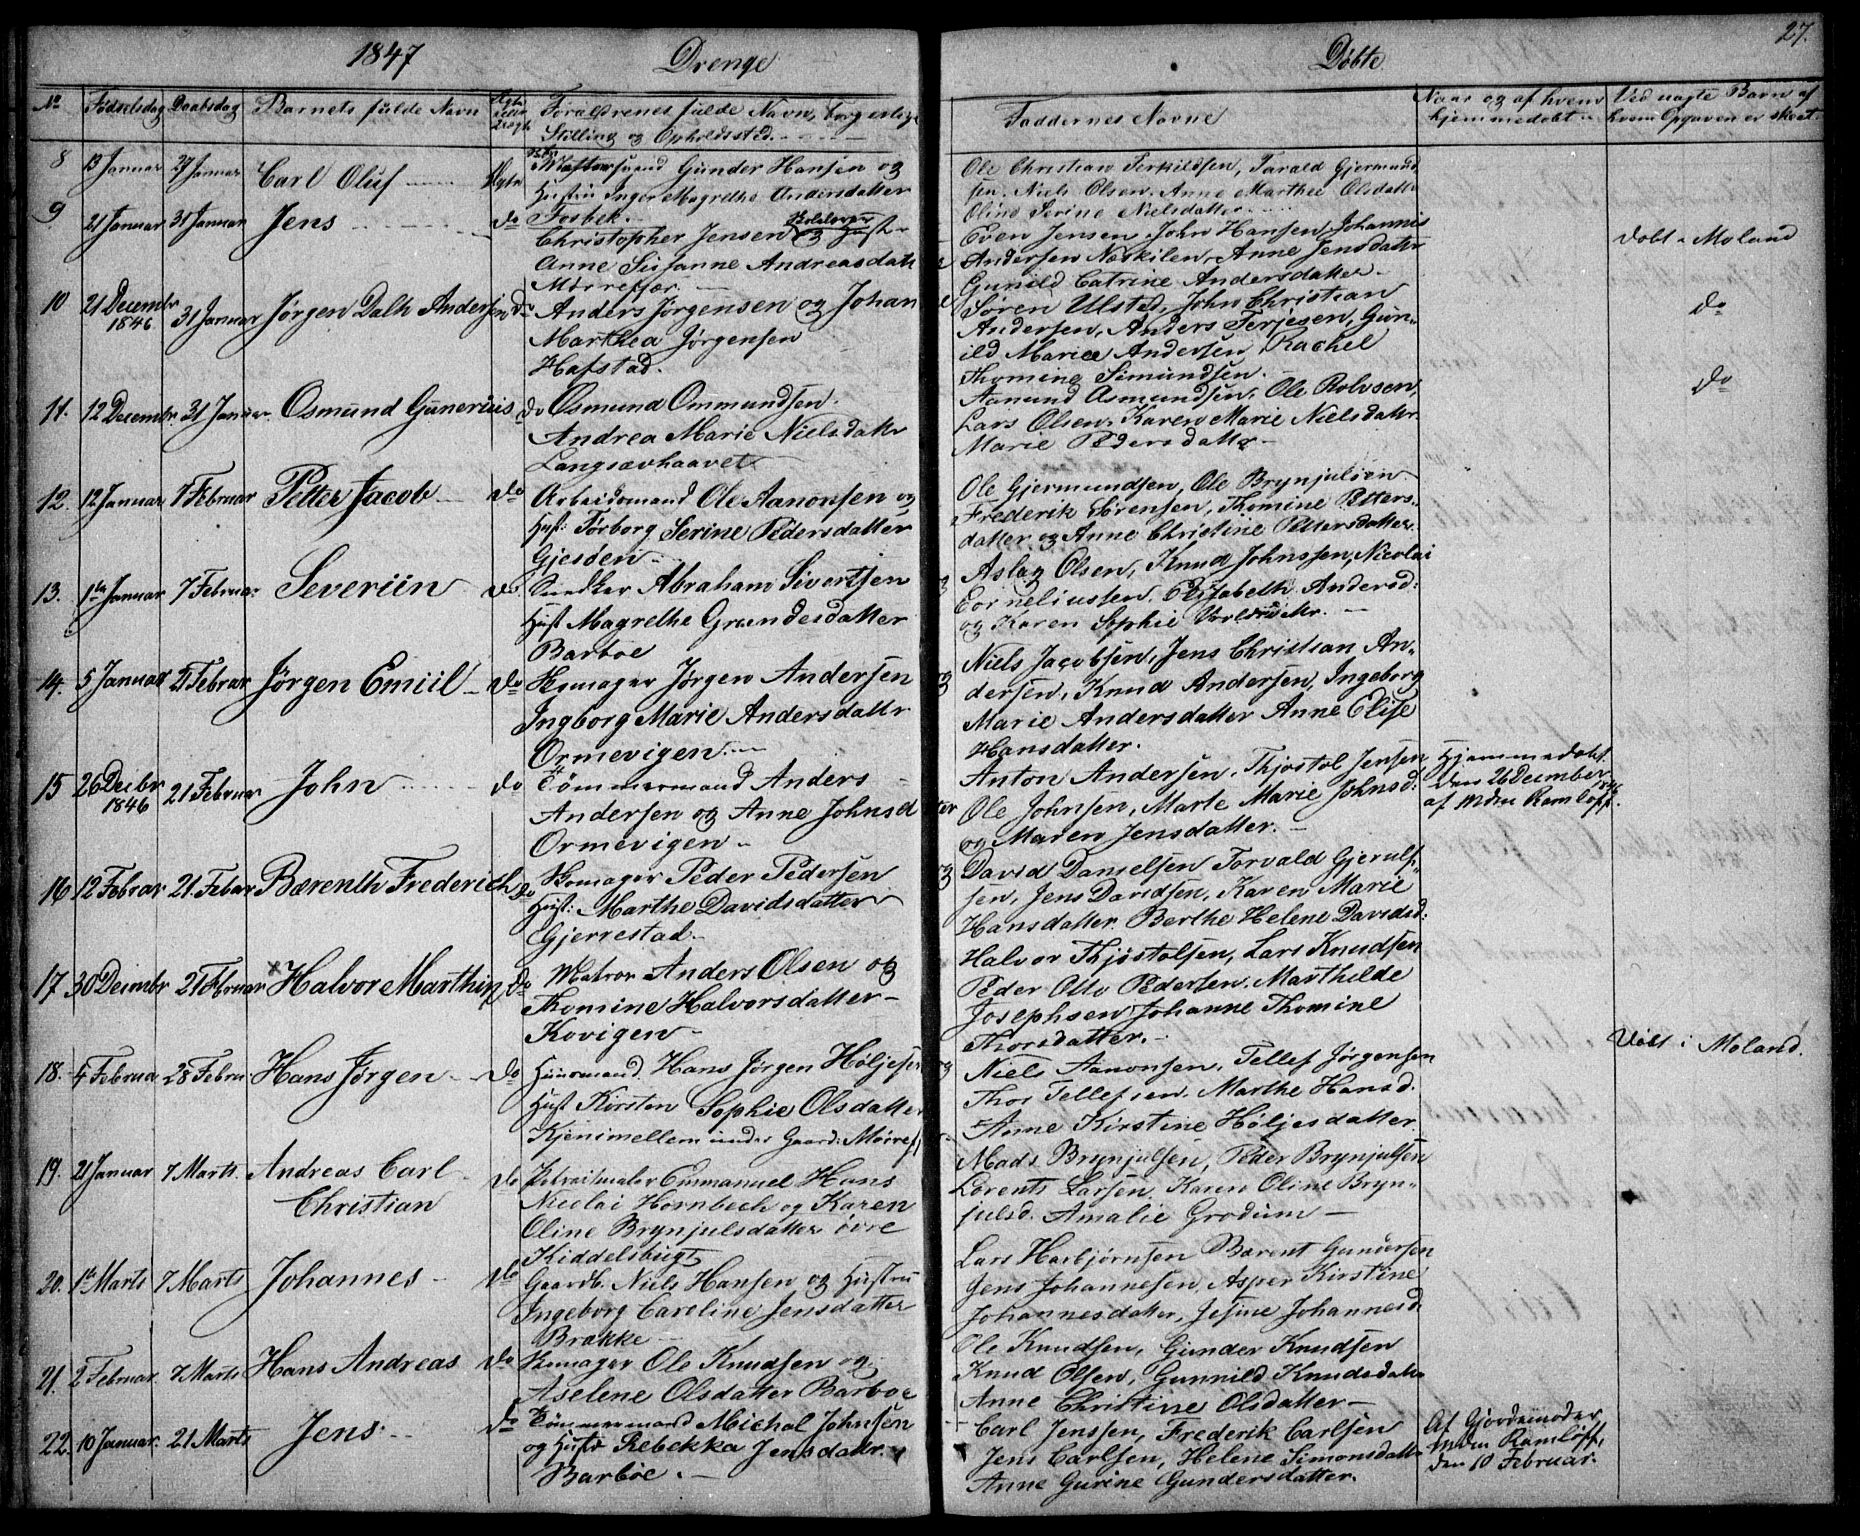 1847 Drenge
Døbte 27.
No Fødselsdag Daabsdag Barnets fulde Navn Ægte eller Uægte Forældrenes fulde Navn, borgerlige
Stilling og Opholdssted
Faddernes Navne
Naar og af hvem
hjemmedøbt
Ved uægte Børn af
hvem Opgaven er skeet
8 13 Januar 27 Januar Carl Oluf Ægte
Gunder Hansen og
Hustru Inger Magrethe Andersdatter
Fosbek.
Ole Christian Terkildsen, Tarald Gjermund
sen. Niels Olsen. Anne Marthee Olsdatter
Oline Serine Nielsdatter
9 21 Januar 31 Januar Jens do
Christopher Jensen og Hust
Anne Susanne Andreasdatt
Mørrefjær.
Even Jensen, John Hansen, Johannis
Andersen Neskilen, Anne Jensdatter
Gunild Catrine Andersdatter
Døbt i Moland
10 21 Decembr 1846 31 Januar Jørgen Dalh Andersen do
Anders Jørgensen og Johan
Marthea Jørgensen
Hafstad.
Søren Ulsted, John Christian
Andersen, Anders Terjesen, Gun-
ild Mariee Andersen, Rachel
Thomine Simundsen.
do
11. 12 Decembr 31 Januar Osmund Gunerius do
Osmund Ommundsen.
Andrea Marie Nielsdatter
Langsævhaavet
Aanund Asmundsen, Ole Rolvsen,
Lars Olsen. Karen Marie Nielsdattr.
Marie Pedersdatter
do
12. 12 Januar 7 Februar Petter Jacob do
Arbeidsmand Ole Aanonsen og
Hust: Tørborg Serine Pedersdatter
Gjesden
Ole Gjermundsen, Ole Brynjulsen.
Frederik Sørensen, Thomine Petters-
datter og Anne Christine Pettersdatter.
13. 1ste Januar 7 Februar Severiin do
Snedker Abraham Sivertsen
Hust Magrethe Grundesdatter
Barboe
Aslag Olsen, Knud Johnssen, Nicolai
Corneliussen. Elisabeth Andersd:
og Karen Sophie
14. 5 Januar 21 Februar Jørgen Emiil do
Skomager Jørgen Andersen
Ingborg Marie Andersdatter
Ormevigen.
Niels Jacobsen, Jens Christian An-
dersen, Knud Andersen, Ingeborg
Marie Andersdatter Anne Elise
Hansdatter.
15 26 Decbr 1846 21 Februar John do
Tømmermand Anders
Andersen og Anne Johnsd
Ormevigen
Anton Andersen, Thjostol Jensen
Ole Johnsen, Marte Marie Johnsd:
og Maren Jensdatter.
Hjemmedøbt
den 26 December 1846
af Mdm Ramløff.
16 12 Februar 21 Februar Bærenth Frederich do
Skomager Peder Pedersen
Hust: Marthe Davidsdatter
Gjerrestad
David Danielsen Torvald Gjeruls-
sen, Jens Davidsen, Karen Marie
Hansdatter. Berthe Helene Davidsd:
17 30 Decembr 21 Februar Halvor Marthin do
Matros Anders Olsen og
Thomine Halvorsdatter
Kovigen
Halvor Thjøstolsen, Lars Knudsen
Peder Otto Pedersen. Marthilde
Josephsen Johanne Thomine
Thorsdatter.
18. 4 Februar 28 Februar Hans Jørgen do
Huusmand. Hans Jørgen Høljesen
Hust Kirsten Sophie Olsdatter
Kjenimellem under Gaard: Mørref
Niels Aanonsen, Tellef Jørgensen
Thor Tellefsen. Marthe Hansd.
Anne Kirstine Høljesdatter
Døbt i Moland.
19. 21 Januar 7 Marts. Andreas Carl
Christian do
Portraitmaler Emmanuel Hans
Nicolai Hornbech og Karen
Oline Brynjulsdatter øvre
Kiddelsbugt
Mads Brynjulsen, Peder Brynjulsen
Lorents Larsen. Karen Oline Bryn-
julsd. Amalie Grodum
20. 1ste Marts 7 Marts Johannes do
Gaardb. Niels Hansen og Hustru
Ingeborg Caroline Jensdatter
Brække
Lars Harbjørnsen Barent Gundersen
Jens Johannesen, Asper Kirstine
Johannesdatter, Jesine Johannesd.
21. 2 Februar. 7 Marts Hans Andreas do
Skomager Ole Knudsen og
Aselene Olsdatter Barboe
Ole Knudsen, Gunder Knudsen
Knud Olsen, Gunnild Knudsdatter
Anne Christine Olsdatter
22. 10 Januar. 21 Marts Jens do
Tømmermand Michal Johnsen
og Hust Rebekka Jensdatter
Barbøe.
Carl Jenssen, Frederik Carlsen
Jens Carlsen, Helene Simonsdatter
Anne Gurine Gundersdatter.
Af Gjordemoder
Mdm Ramløff,
den 10 Februar.